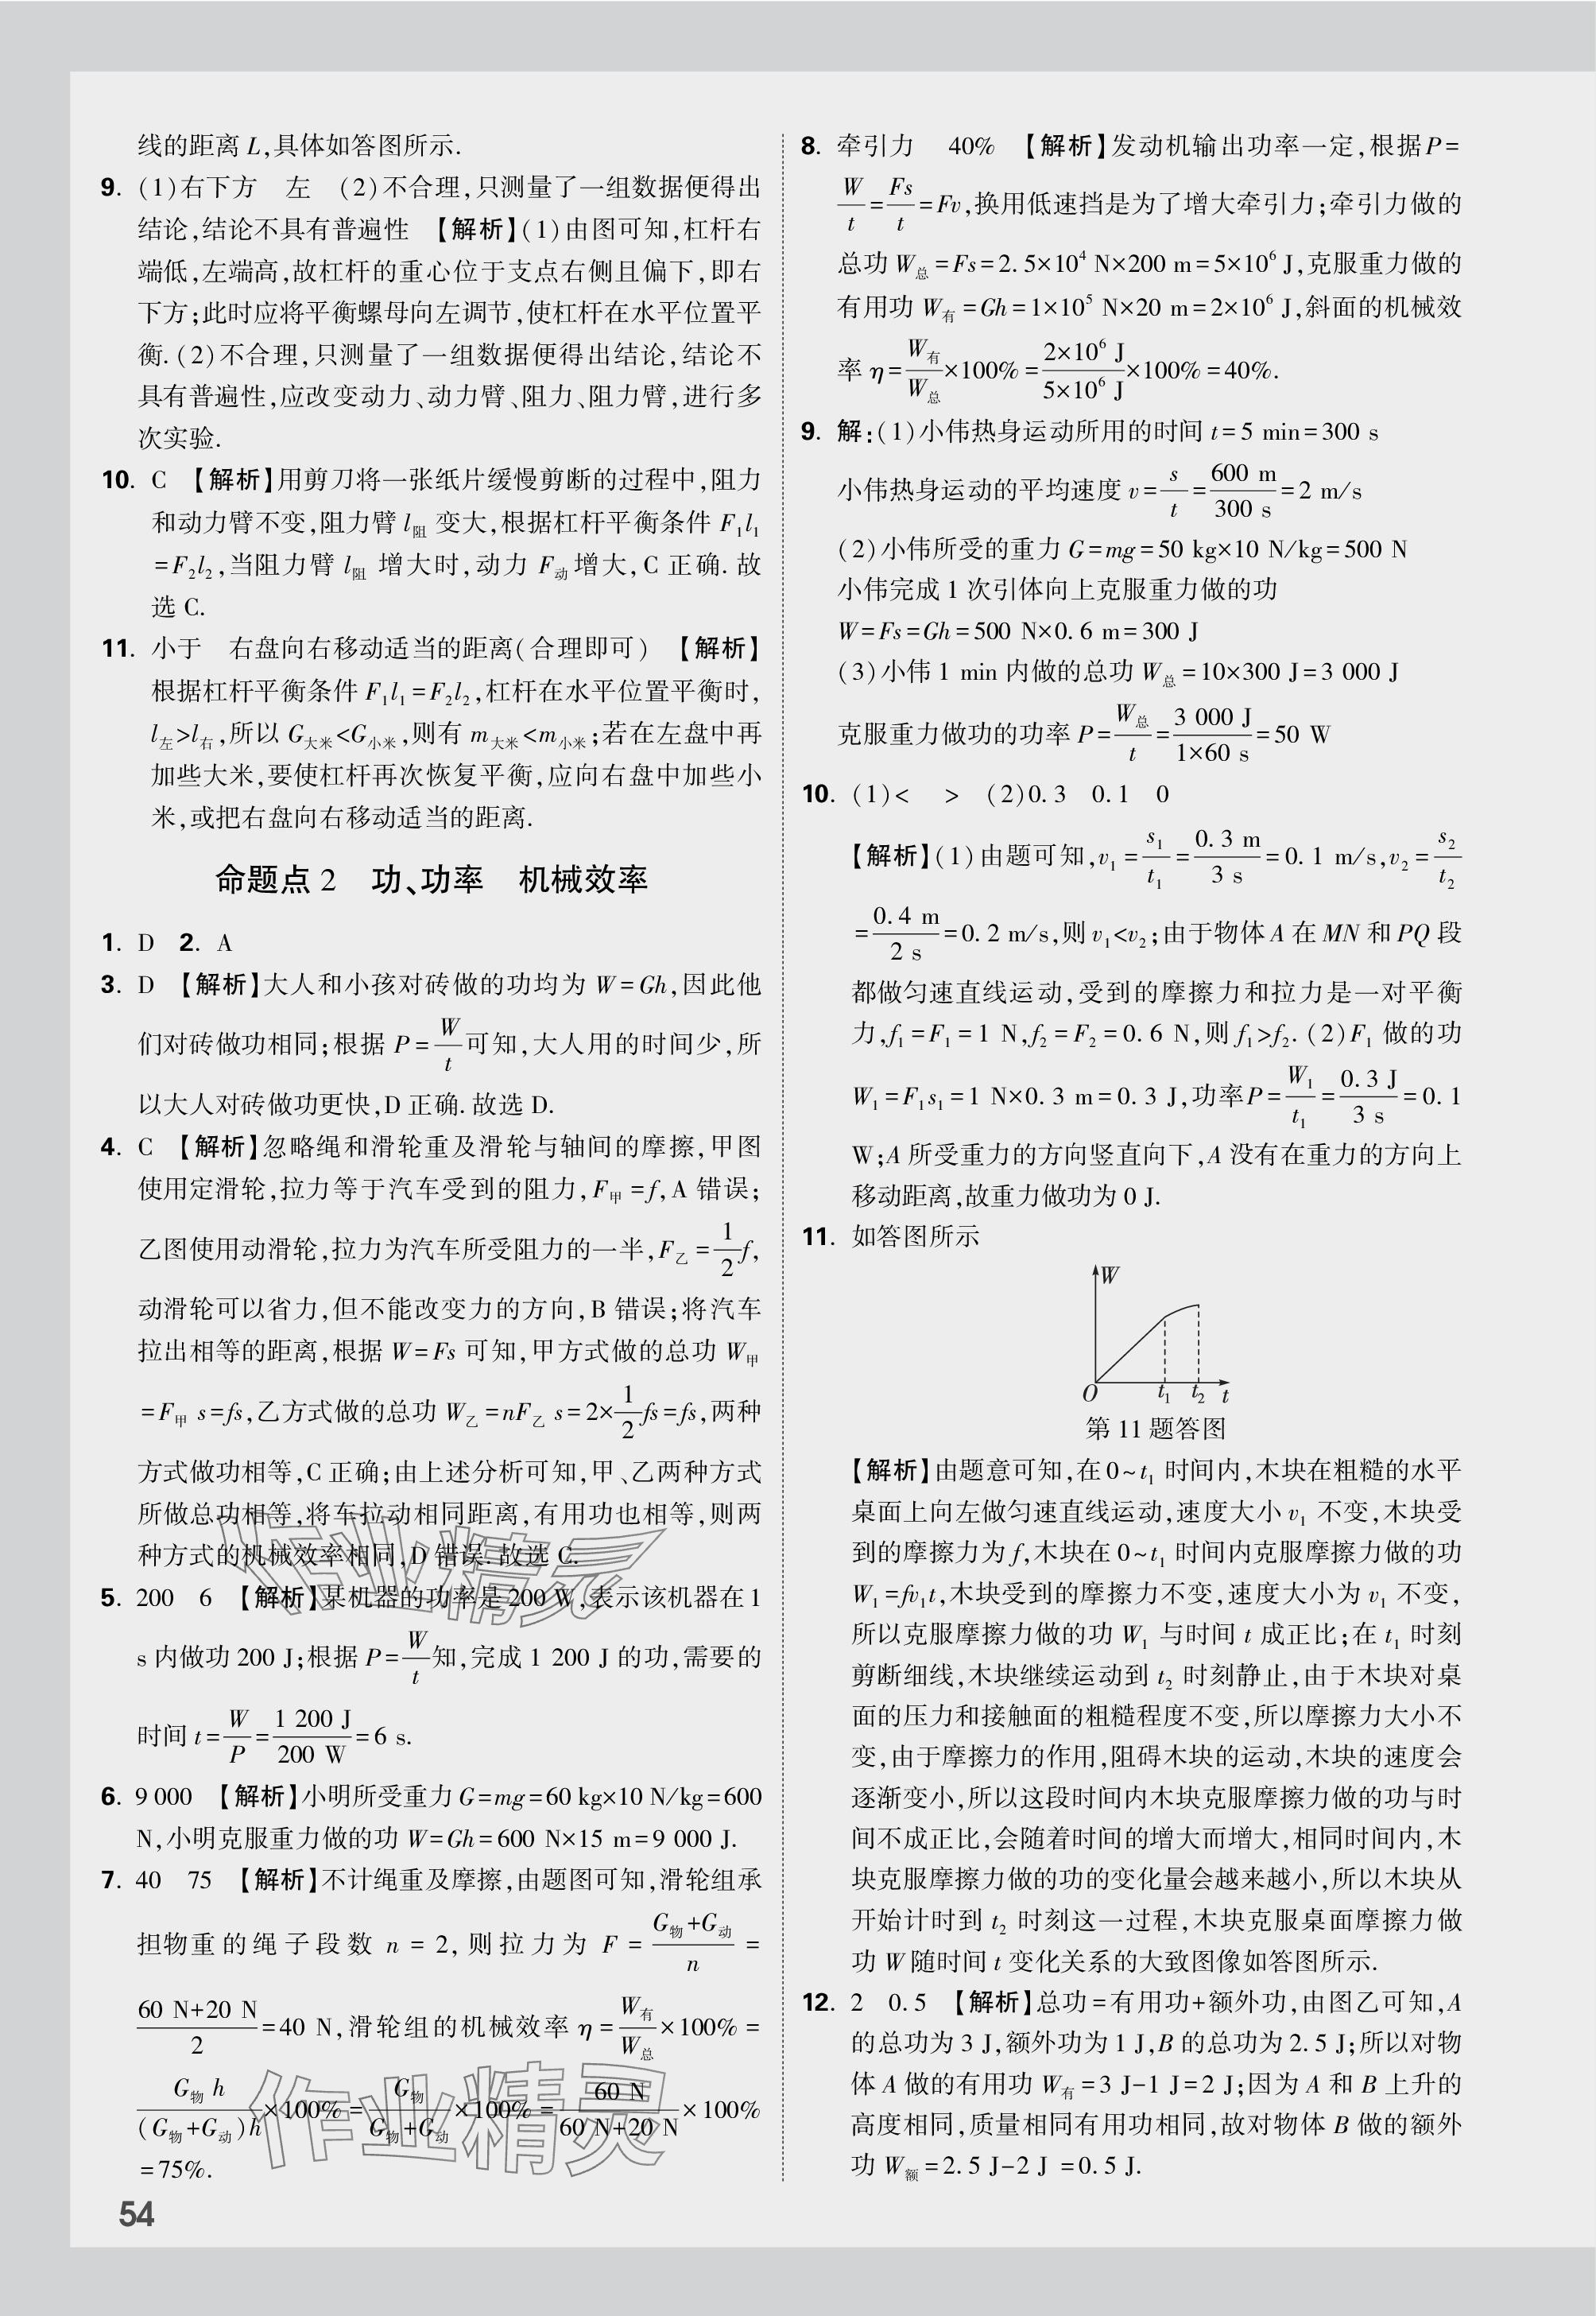 线的距离 L,具体如答图所示.
9. (1)右下方　左　(2)不合理,只测量了一组数据便得出
结论,结论不具有普遍性　【解析】(1)由图可知,杠杆右
端低,左端高,故杠杆的重心位于支点右侧且偏下,即右
下方;此时应将平衡螺母向左调节,使杠杆在水平位置平
衡.(2)不合理,只测量了一组数据便得出结论,结论不
具有普遍性,应改变动力、动力臂、阻力、阻力臂,进行多
次实验.
10. C　【解析】用剪刀将一张纸片缓慢剪断的过程中,阻力
和动力臂不变,阻力臂 l阻 变大,根据杠杆平衡条件 F₁l₁
=F₂l₂,当阻力臂 l阻 增大时,动力 F动增大,C 正确. 故
选 C.
11. 小于　右盘向右移动适当的距离(合理即可)　【解析】
根据杠杆平衡条件 F₁l₁=F₂l₂,杠杆在水平位置平衡时,
l左>l右,所以 G大米<G小米,则有 m大米<m小米;若在左盘中再
加些大米,要使杠杆再次恢复平衡,应向右盘中加些小
米,或把右盘向右移动适当的距离.
命题点 2　功、功率　机械效率
1. D　2. A
3. D　【解析】大人和小孩对砖做的功均为 W=Gh,因此他
们对砖做功相同;根据 P=W/t可知,大人用的时间少,所
以大人对砖做功更快,D 正确. 故选 D.
4. C　【解析】忽略绳和滑轮重及滑轮与轴间的摩擦,甲图
使用定滑轮,拉力等于汽车受到的阻力,F甲=f,A 错误;
乙图使用动滑轮,拉力为汽车所受阻力的一半,F乙=1/2f,
动滑轮可以省力,但不能改变力的方向,B 错误;将汽车
拉出相等的距离,根据 W=Fs 可知,甲方式做的总功 W甲
=F甲 s=fs,乙方式做的总功 W乙=nF乙 s=2×1/2fs=fs,两种
方式做功相等,C 正确;由上述分析可知,甲、乙两种方式
所做总功相等,将车拉动相同距离,有用功也相等,则两
种方式的机械效率相同,D 错误. 故选 C.
5. 200　6　【解析】某机器的功率是 200 W,表示该机器在 1
s 内做功 200 J;根据 P=W/t知,完成 1 200 J 的功,需要的
时间 t=W/P=1 200 J/200 W=6 s.
6. 9 000　【解析】小明所受重力 G=mg=60 kg×10 N/kg=600
N,小明克服重力做的功 W=Gh=600 N×15 m=9 000 J.
7. 40　75　【解析】不计绳重及摩擦,由题图可知,滑轮组承
担物重的绳子段数 n = 2,则拉力为 F = (G物+G动)/n =
(60 N+20 N)/2=40 N,滑轮组的机械效率 η=W有/W总×100%=
G物 h/(G物+G动)h×100%=G物/(G物+G动)×100%=60 N/(60 N+20 N)×100%
=75%.
54
8. 牵引力　40%　【解析】发动机输出功率一定,根据P=
W/t=Fs/t=Fv,换用低速挡是为了增大牵引力;牵引力做的
总功 W总=Fs=2.5×10⁴ N×200 m=5×10⁶ J,克服重力做的
有用功 W有=Gh=1×10⁵ N×20 m=2×10⁶ J,斜面的机械效
率 η=W有/W总×100%=2×10⁶ J/5×10⁶ J×100%=40%.
9. 解:(1)小伟热身运动所用的时间 t=5 min=300 s
小伟热身运动的平均速度 v=s/t=600 m/300 s=2 m/s
(2)小伟所受的重力 G=mg=50 kg×10 N/kg=500 N
小伟完成 1 次引体向上克服重力做的功
W=Fs=Gh=500 N×0.6 m=300 J
(3)小伟 1 min 内做的总功 W总=10×300 J=3 000 J
克服重力做功的功率 P=W总/t=3 000 J/1×60 s=50 W
10. (1)<　>　(2)0.3　0.1　0
【解析】(1)由题可知,v₁=s₁/t₁=0.3 m/3 s=0.1 m/s,v₂=s₂/t₂
=0.4 m/2 s=0.2 m/s,则 v₁<v₂;由于物体 A 在 MN 和 PQ 段
都做匀速直线运动,受到的摩擦力和拉力是一对平衡
力,f₁=F₁=1 N,f₂=F₂=0.6 N,则 f₁>f₂. (2)F₁ 做的功
W₁=F₁s₁=1 N×0.3 m=0.3 J,功率P=W₁/t₁=0.3 J/3 s=0.1
W;A 所受重力的方向竖直向下,A 没有在重力的方向上
移动距离,故重力做功为 0 J.
11. 如答图所示
W
O　t₁　t₂　t
第 11 题答图
【解析】由题意可知,在 0~t₁ 时间内,木块在粗糙的水平
桌面上向左做匀速直线运动,速度大小 v₁ 不变,木块受
到的摩擦力为 f,木块在 0~t₁ 时间内克服摩擦力做的功
W₁=fv₁t,木块受到的摩擦力不变,速度大小为 v₁ 不变,
所以克服摩擦力做的功 W₁ 与时间 t 成正比;在 t₁ 时刻
剪断细线,木块继续运动到 t₂ 时刻静止,由于木块对桌
面的压力和接触面的粗糙程度不变,所以摩擦力大小不
变,由于摩擦力的作用,阻碍木块的运动,木块的速度会
逐渐变小,所以这段时间内木块克服摩擦力做的功与时
间不成正比,会随着时间的增大而增大,相同时间内,木
块克服摩擦力做的功的变化量会越来越小,所以木块从
开始计时到 t₂ 时刻这一过程,木块克服桌面摩擦力做
功 W 随时间 t 变化关系的大致图像如答图所示.
12. 2　0.5　【解析】总功=有用功+额外功,由图乙可知,A
的总功为 3 J,额外功为 1 J,B 的总功为 2.5 J;所以对物
体 A 做的有用功 W有=3 J-1 J=2 J;因为 A 和 B 上升的
高度相同,质量相同有用功相同,故对物体 B 做的额外
功 W额=2.5 J-2 J =0.5 J.
作业精灵
作业精灵